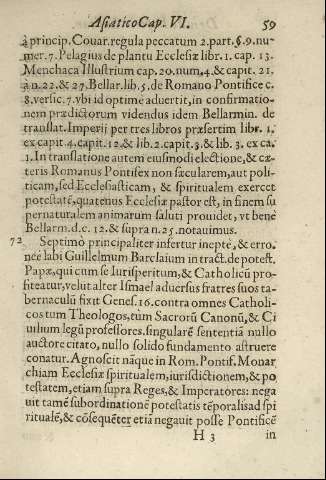 Asiatico Cap. VI. 59
à princip. Couar. regula peccatum 2. part. §. 9. nu-
mer. 7. Pelagius de plantu Ecclesiæ libr. 1. cap. 13.
Menchaca Illustrium cap. 20. num. 4. & capit. 21.
a n. 22. & 27. Bellar. lib. 5. de Romano Pontifice c.
8. versic. 7. vbi id optime aduertit, in confirmatio-
nem prædictorum videndus idem Bellarmin. de
translat. Imperij per tres libros præsertim libr. 1.
ex capit. 4. capit. 12. & lib. 2. capit. 3. & lib. 3. ex ca.
1. In translatione autem eiusmodi electione, & cæ-
teris Romanus Pontifex non sæcularem, aut poli-
ticam, sed Ecclesiasticam, & spiritualem exercet
potestatẽ, quatenus Ecclesiæ pastor est, in finem su
pernaturalem animarum saluti prouidet, vt bene
Bellarm. d. c. 12. & supra n. 25. notauimus.
72 Septimò principaliter infertur ineptè, & erro-
neè labi Guillelmum Barclaium in tract. de potest.
Papæ, qui cum se Iurisperitum, & Catholicũ pro-
fiteatur, velut alter Ismael aduersus fratres suos ta-
bernaculũ fixit Genes. 16. contra omnes Catholi-
cos tum Theologos, tùm Sacrorũ Canonũ, & Ci
uilium legũ professores, singularẽ sententiã nullo
auctore citato, nullo solido fundamento astruere
conatur. Agnoscit nãque in Rom. Pontif. Monar
chiam Ecclesiæ spiritualem, iurisdictionem, & po
testatem, etiam supra Reges, & Imperatores: nega
uit tamẽ subordinationẽ potestatis tẽporalis ad spi
ritualẽ, & cõsequẽter etiã negauit posse Pontificẽ
H 3 in